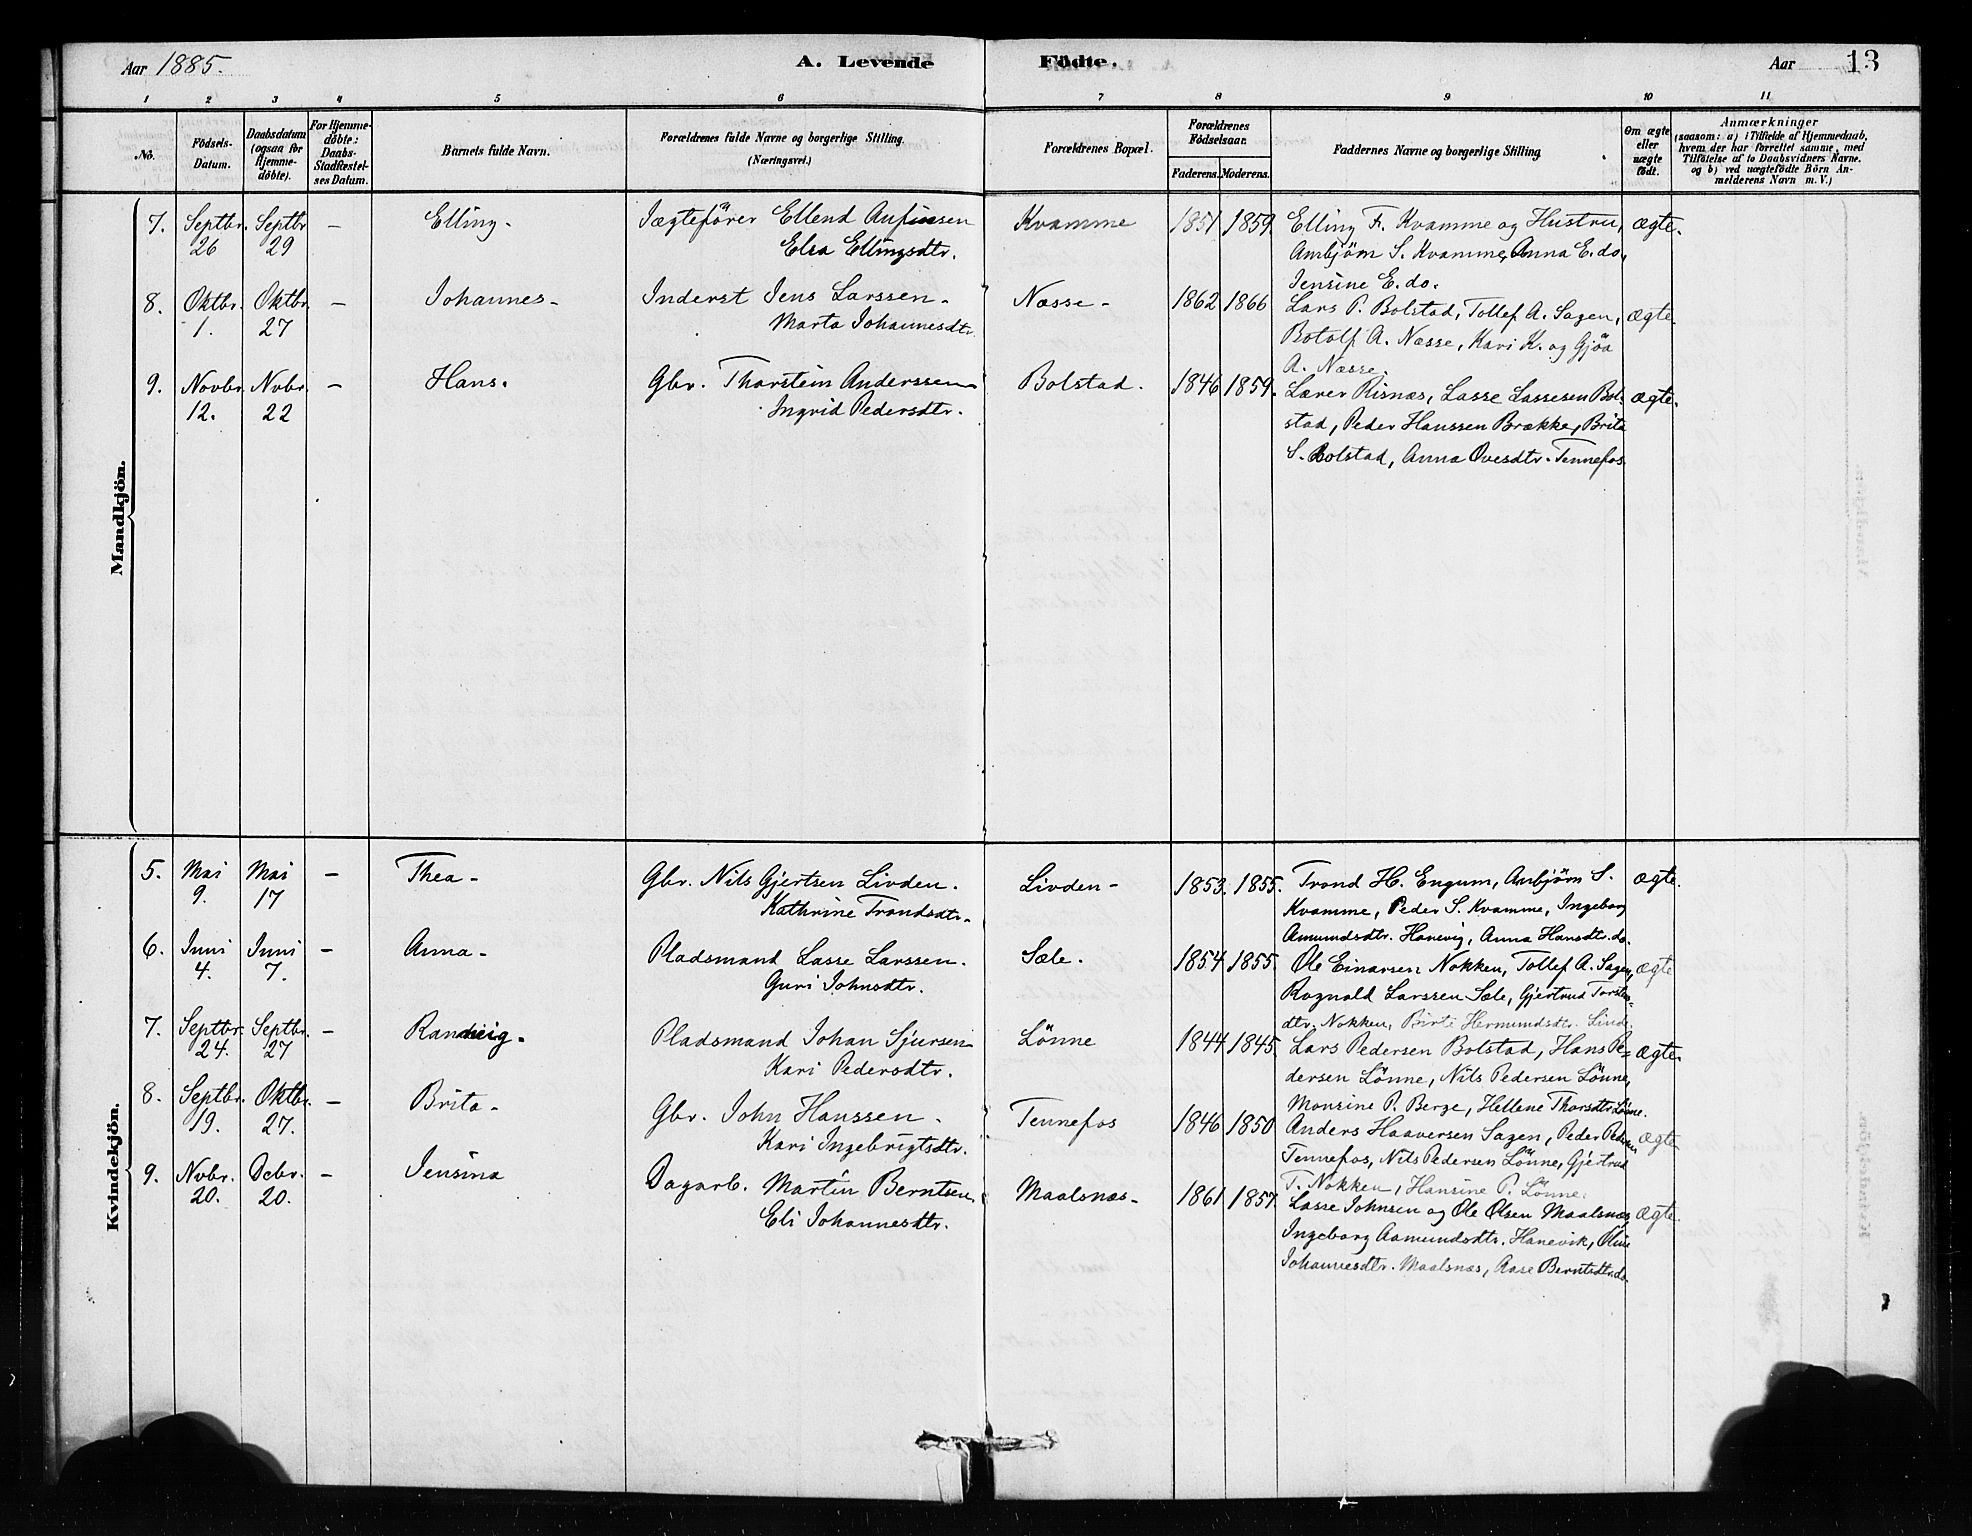 Aar 1885.
A. Levende Födte.
Aar
13
1 2 3 4 5 6 7 8 9 10 11
No.
Födsels-Datum.
Daabsdatum (ogsaa for Hjemme-döbte).
For Hjemme-döbte: Daabs-Stadfæstel-ses Datum.
Barnets fulde Navn.
Forældrenes fulde Navne og borgerlige Stilling.
(Næringsvei.)
Forældrenes Bopæl.
Forældrenes Födselsaar.
Faderens. Moderens.
Faddernes Navne og borgerlige Stilling
Om ægte eller uægte födt.
Anmærkninger
(saasom: a) i Tilfælde af Hjemmedaab,
hvem der har forrettet samme, med
Tilföielse af to Daabsvidners Navne.
og b) ved uægtefödte Börn An-
melderens Navn m. V.)
Mandkjön.
7. Septbr. 26 Septbr 29 - Elling. Jægtefører Ellend Anfinsen
Elsa Ellingsdtr.
Kvamme 1851 1859. Elling F. Kvamme og Hustru, ægte.
Ambjörn S. Kvamme, Anna E. do,
Jensine E. do.
8. Oktbr. 1. Oktbr. 27 - Johannes- Inderst Jens Larssen-
Marta Johannesdtr
Næsse- 1862 1866 Lars P. Bolstad, Tollef A. Sagen, ægte.
Botolf A. Næsse, Kari K. og Gjöa
A. Næsse.
9. Novbr. 12. Nvbr. 22 - Hans. Gbr. Thorstein Anderssen
Ingrid Pedersdtr.
Bolstad. 1846 1859. Lærer Risnæs, Lasse Lassesen Bol- ægte.
stad, Peder Hanssen Brække, Brita
S. Bolstad, Anna Ovesdtr. Tennefos
Kvindekjön.
5. Mai 9. Mai 17 - Thea- Gbr. Nils Gjertsen Livden.
Kathrine Trondsdtr.
Livden- 1853. 1855. Trond H. Engum, Anbjörn S. ægte.
Kvamme, Peder S. Kvamme, Ingeborg
Amundsdtr. Hanevig, Anna Hansdtr. do.
6. Juni 4. Juni 7. - Anna- Pladsmand Lasse Larssen.
Guri Johnsdtr.
Sæle. 1854 1855. Ole Einarsen Nokken, Tollef A. Sagen, ægte
Ragnald Larssen Sæle, Gjertrud Torsten-
dtr. Nokken, Birte Hermundsdtr. Linde.
7. Septbr. 24. Septbr. 27 - Randveig. Pladsmand Johan Sjursen
Kari Pedersdtr.
Lönne 1844 1845. Lars Pedersen Bolstad, Hans Pe= ægte.
dersen Lönne, Nils Pedersen Lönne,
Monsine P. Berge, Hellene Thorsdtr. Lönne.
8. Septbr. 19. Oktbr. 27. - Brita- Gbr. John Hanssen-
Kari Ingebrigtsdtr.
Tennefos 1846 1850 Anders Haaversen Sagen, Peder Pedersen ægte
Tennefos, Nils Pedersen Lönne, Gjertrud
T. Nokken, Hansine P. Lönne.
9. Nvbr. 20. Debr. 20. - Jensina Dagarb. Martin Berntsen.
Eli Johannesdtr.
Maalsnæs- 1861 1857. Lasse Johnsen og Ole Olsen Maalsnæs, ægte.
Ingeborg Aamundsdtr. Hanevik, Oline
Johannesdtr. Maalsnæs, Aase Berntsdtr. do.